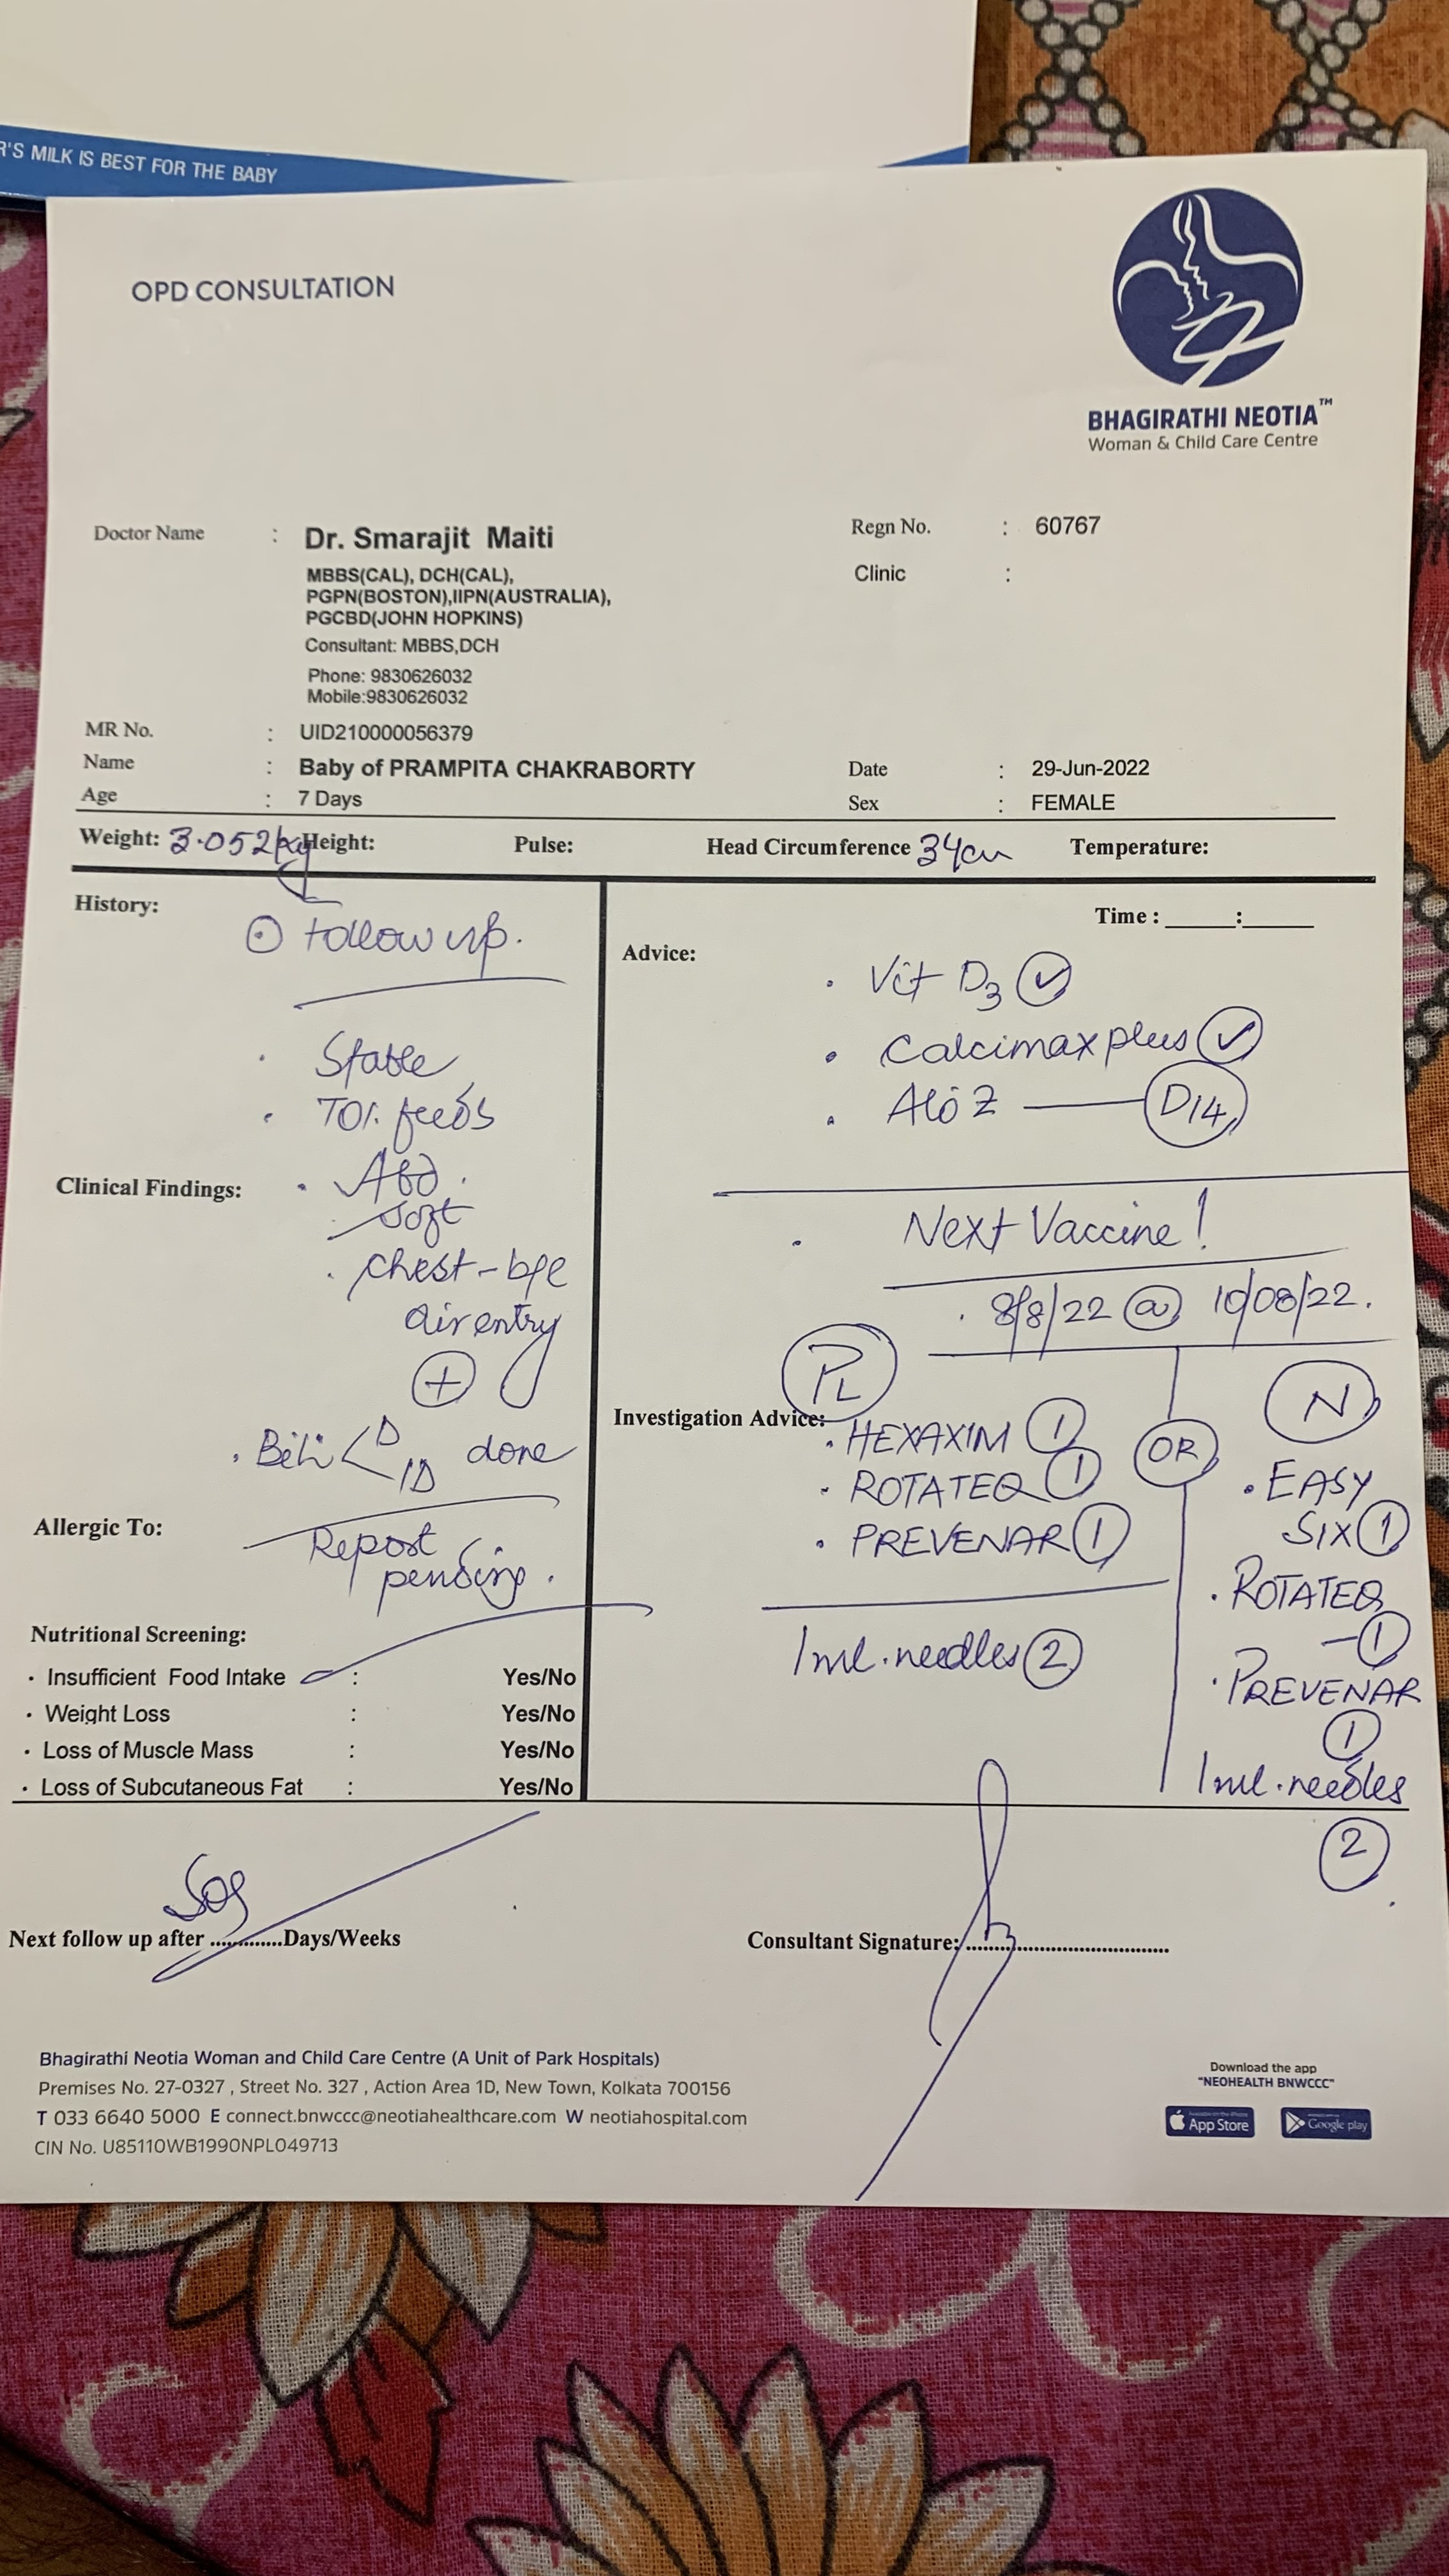 R'S MILK IS BEST FOR THE BABY
OPD CONSULTATION
BHAGIRATHI NEOTIA™
Woman & Child Care Centre
Doctor Name : Dr. Smarajit Maiti
Regn No. : 60767
MBBS(CAL), DCH(CAL),
Clinic :
PGPN(BOSTON),IIPN(AUSTRALIA),
PGCBD(JOHN HOPKINS)
Consultant: MBBS,DCH
Phone: 9830626032
Mobile:9830626032
MR No. : UID210000056379
Name : Baby of PRAMPITA CHAKRABORTY
Date : 29-Jun-2022
Age : 7 Days
Sex : FEMALE
Weight: 3.052kg Height: Pulse: Head Circumference 34cm Temperature:
History:
Follow up.
. Stable
. Tol. feeds
Clinical Findings:
. Abd.
soft
. Chest - b/l
air entry
+
. Bili < D
ID done
Allergic To:
Report
pending.
Nutritional Screening:
· Insufficient Food Intake : Yes/No
· Weight Loss : Yes/No
· Loss of Muscle Mass : Yes/No
· Loss of Subcutaneous Fat : Yes/No
Time : _____:_____
Advice:
. Vit D3 ✓
. Calcimax plus ✓
. D14
. Next Vaccine!
. 8/8/22 @ 10/08/22.
PL
Investigation Advice:
. HEXAXIM 1
. ROTATEQ 1
. PREVENAR 1
1ml. needles 2
OR
N
. EASY
SIX 1
. ROTATEQ
- 1
. PREVENAR
1
1ml. needles
2
SOS
Next follow up after .............Days/Weeks
Consultant Signature: ........................................
Bhagirathi Neotia Woman and Child Care Centre (A Unit of Park Hospitals)
Premises No. 27-0327 , Street No. 327 , Action Area 1D, New Town, Kolkata 700156
T 033 6640 5000 E connect.bnwccc@neotiahealthcare.com W neotiahospital.com
CIN No. U85110WB1990NPL049713
Download the app
"NEOHEALTH BNWCCC"
App Store
Google play